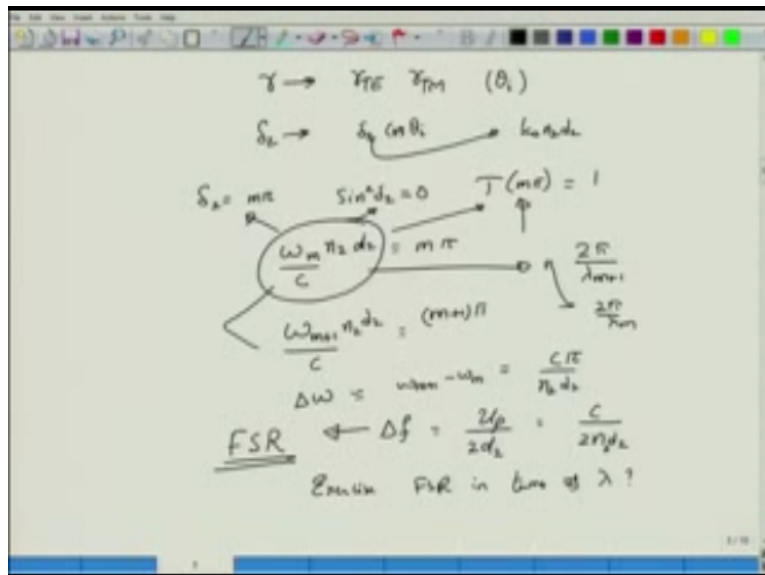 File Edit View Insert Actions Tools Help
γ → γTE γTM (θi)
δ2 → δ2 cos θi → k0 n2 d2
δ2 = mπ sin²δ2 = 0 T(mπ) = 1
ωm/c n2 d2 = mπ
2π/λm+1
2π/λm
ωm+1/c n2 d2 = (m+1)π
Δω = ωm+1 - ωm = cπ/n2 d2
FSR ← Δf = υp/2d2 = c/2n2d2
Exercise FSR in terms of λ?